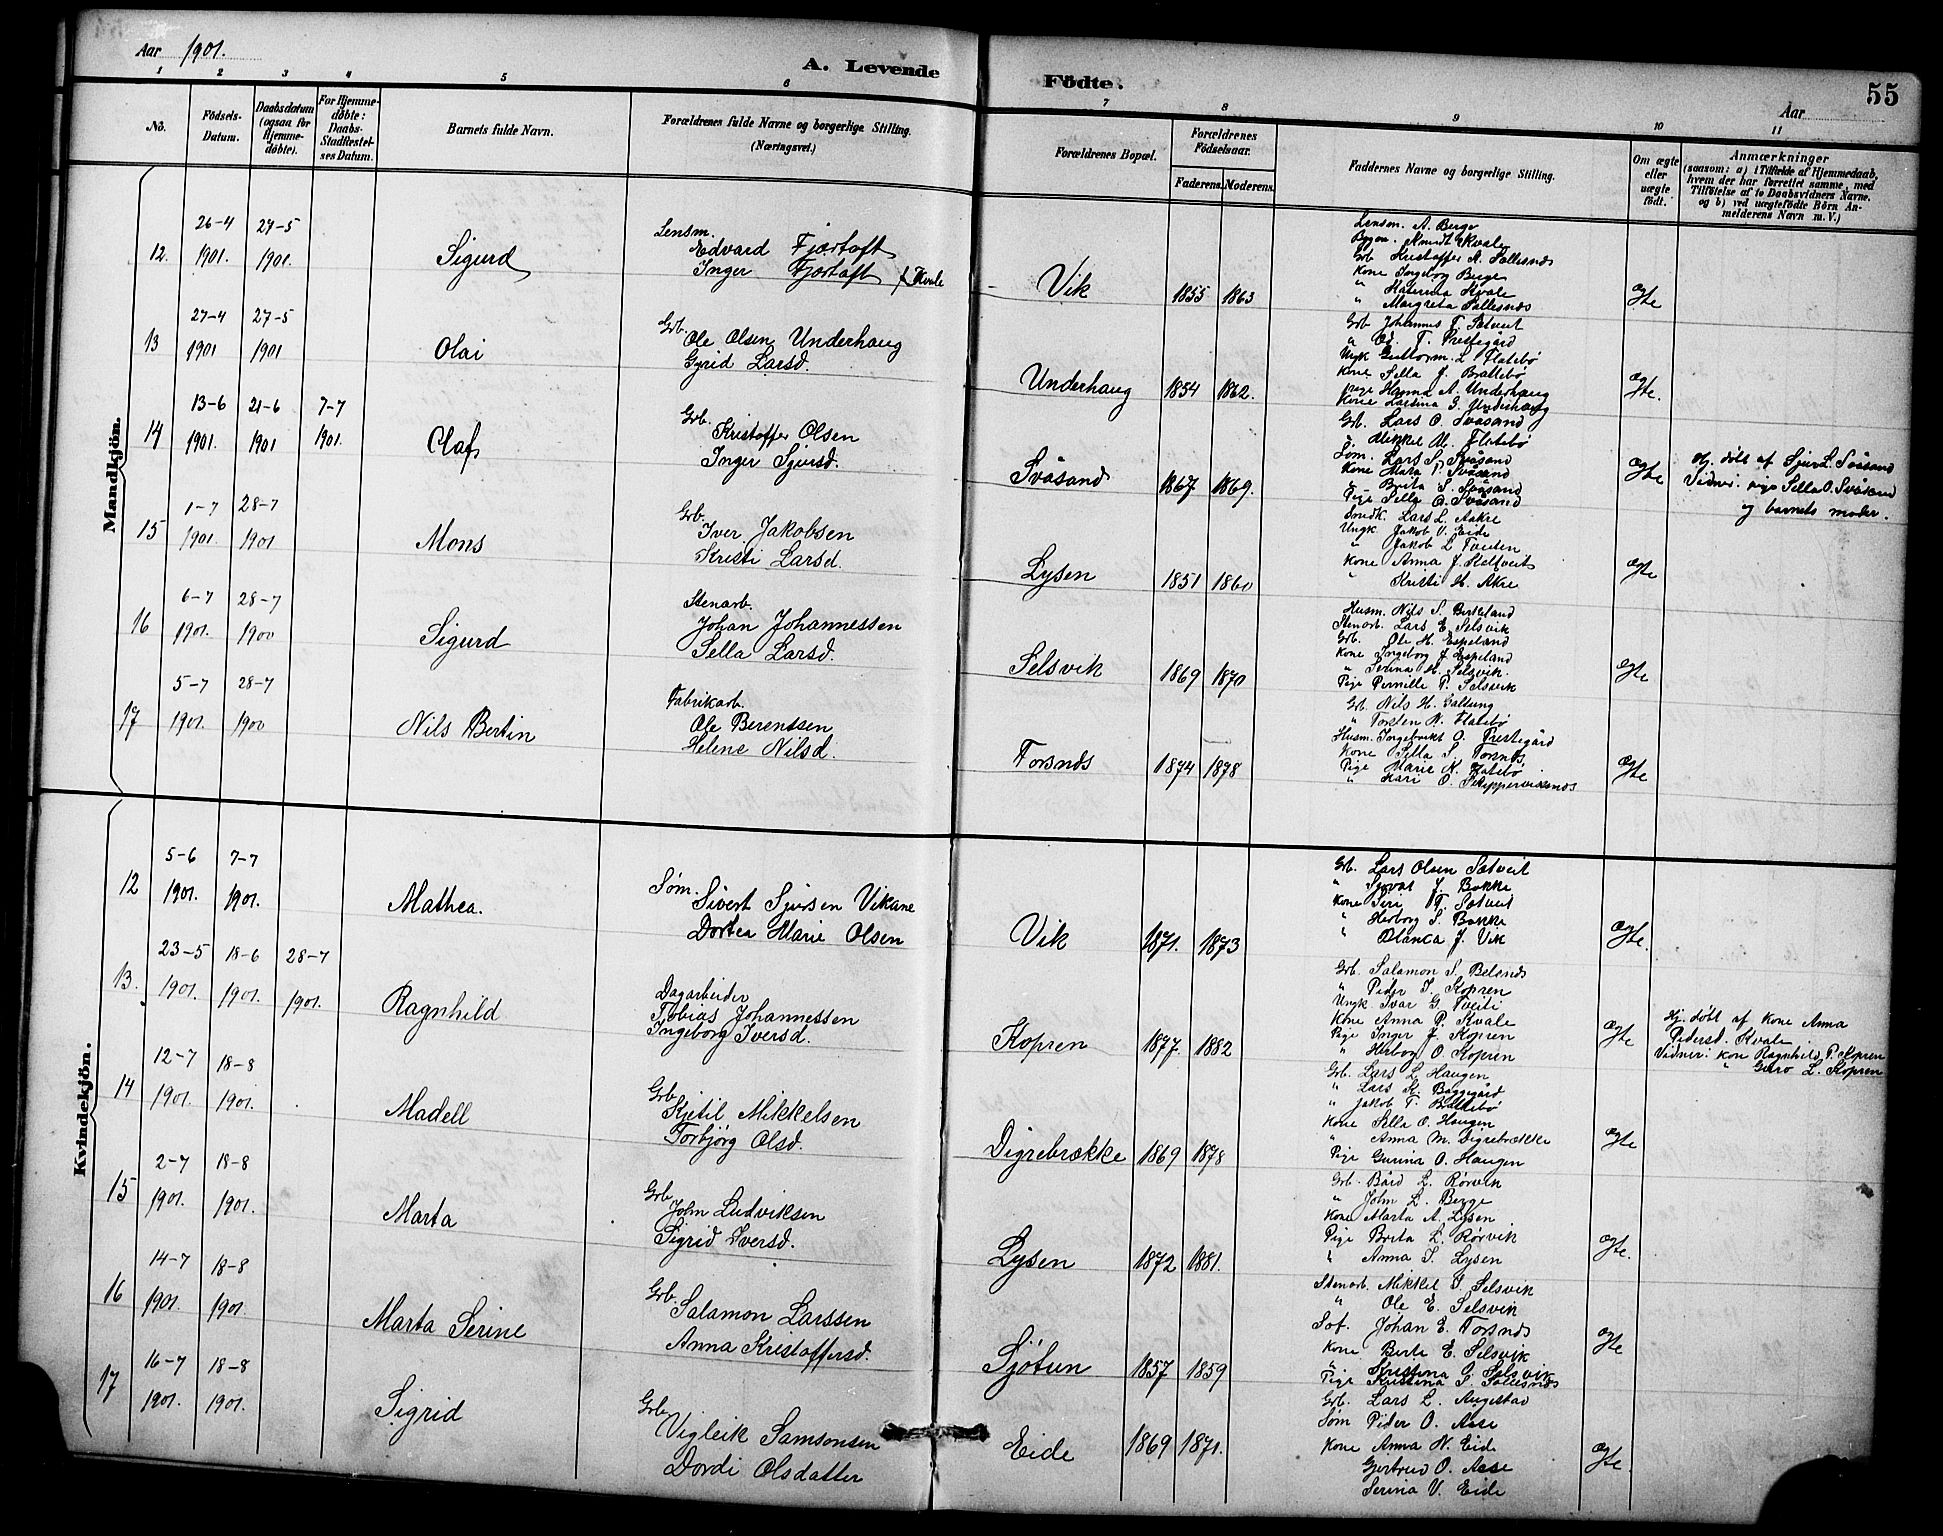 Aar 1901.
A. Levende Födte.
Aar
55
1 2 3 4 5 6 7 8 9 10 11
No.
Födsels-
Datum.
Daabsdatum
(ogsaa for
Hjemme-
döbte).
For Hjemme-
döbte:
Daabs-
Stadfæstel-
ses Datum.
Barnets fulde Navn.
Forældrenes fulde Navne og borgerlige Stilling.
(Næringsvei.)
Forældrenes Bopæl.
Forældrenes
Födselsaar.
Faderens. Moderens.
Faddernes Navne og borgerlige Stilling.
Om ægte
eller
uægte
födt.
Anmærkninger
(saasom: a) i Tilfælde af Hjemmedaab,
hvem der har forrettet samme, med
Tilföielse af to Daabsvidners Navne.
og b) ved uægtefödte Börn An-
melderens Navn m. V.)
Mandkjön.
12. 26-4 1901. 27-5 1901.
Sigurd
Lensm.
Edvard Fjærtoft
Inger Fjærtoft f. Kvale
Vik 1855 1863
Lensm. A. Berge
Amdt Kvale
Grb Kristoffer A. Sallesnæs
Kone Ingeborg Berge
" Katrina Kvale
" Margreta Sallesnæs
Ægte
13 27-4 1901 27-5 1901
Olai
Grb.
Ole Olsen Underhaug
Gyrid Larsd.
Underhaug 1854 1862.
Grb Johannes T. Sætveit
" T. Prestegård
Ungk Guttorm L. Flatebø
Kone Sella J. Brattebø
Pige Hanna A. Underhaug
Kone Larsina G. Underhaug
Ægte.
14 13-6 1901 21-6 1901 7-7 1901.
Olaf
Grb.
Kristoffer Olsen
Inger Sjursd.
Svåsand 1867 1869.
Grb. Lars O. Svåsand
" Mikkel M. Flatebø
Søm. Lars S. Svåsand
Kone Marta P. Svåsand
" Brita S. Svåsand
Pige Sella O. Svåsand
Ægte
Hj. døbt af Sjur L. Svåsand
Vidner: pige Sella O. Svåsand
og barnets moder.
15 1-7 1901 28-7 1901
Mons
Grb.
Iver Jakobsen
Kristi Larsd.
Lysen 1851 1860
Snedk. Lars L. Aakre
Ungk Jakob V. Eide
" Jakob L.
Kone Anna J.
" Kristi H. Akre
Ægte
16 6-7 1901. 28-7 1900
Sigurd
Stenarb.
Johan Johannessen
Sella Larsd.
Selsvik 1869 1870
Husm. Nils S. Birkeland
Stenarb. Lars E. Selsvik
Grb. Ole H. Espeland
Kone Ingeborg J. Espeland
" Serina H. Selsvik.
Pige Pernille P. Selsvik
Ægte
17 5-7 1901. 28-7 1900
Nils Bertin
Fabrikarb.
Ole Berentsen
Helene Nilsd.
Torsnæs 1874 1878
Grb. Nils H. Galtung
" Torsten N. Flatebø
Husm. Ingebrikt O. Prestegård
Kone Sella S. Torsnæs
Pige Marie N. Flatebø
" Kari O. Skippervisnæs
Ægte
Kvindekjön.
12 5-6 1901. 7-7 1901.
Mathea.
Søm.
Sivert Sjursen Vikane
Dortea Marie Olsen
Vik 1871. 1873
Grb. Lars Olsen Sætveit
" Sjovat J. Bakke
Kone Siri T. Sætveit
" Herborg S. Bakke
" Blanca J. Vik
Ægte.
13. 23-5 1901. 18-6 1901. 28-7 1901.
Ragnhild
Dagarbeider
Tobias Johannessen
Ingeborg Iversd.
Kopren 1877. 1882
Grb. Salamon S. Belsnæs
" Peder I. Kopren
Ungk Ivar G. Tveiti
Kone Anna P. Kvale
Pige Inger J. Kopren
" Herborg O. Kopren
Ægte
Hj. døbt af kone Anna
Pedersd. Kvale
Vidner: kone Ragnhild P. Kopren
" Guro L. Kopren
14 12-7 1901. 18-8 1901.
Madell
Grb.
Kjetil Mikkelsen
Torbjörg Olsd.
Digrebrække 1869 1878
Grb. Lars L. Haugen
" Lars K. Byggegård
" Jakob T. Brattebø
Kone Sella O. Haugen
" Anna M. Digrebrække
Pige Gunna O. Haugen
Ægte
15 2-7 1901. 18-8 1901.
Marta
Grb.
John Ludviksen
Sigrid Iversd.
Lysen 1872 1881.
Grb. Bård L. Rørvik
" John L. Berge
Kone Marta A. Lysen
Pige Brita L. Rørvik
" Anna I. Lysen
Ægte.
16 14-7 1901. 18-8 1901
Marta Serine
Grb.
Salamon Larssen
Anna Kristoffersd.
Sjøtun 1857 1859
Stenarb. Mikkel I. Selsvik
" Ole E. Selsvik
Sof. Johan E. Torsnæs
Kone Berte E. Selsvik
" Kristina O. Selsvik
Pige Kristina S. Sallesnæs
Ægte
17 16-7 1901. 18-8 1901.
Sigrid
Grb.
Vigleik Samsonsen
Dordi Olsdatter
Eide 1869 1871.
Grb. Lars L. Augestad
Søm Peder O. Aase
Kone Anna N. Eide
Gjertrud O. Aase
Serina V. Eide
Ægte.